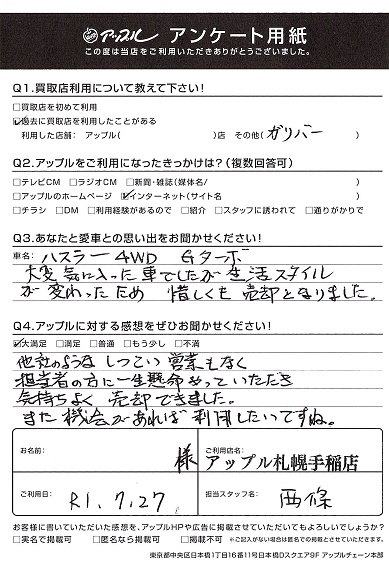 アップル アンケート用紙
この度は当店をご利用いただきありがとうございました。
Q1.買取店利用について教えて下さい!
□買取店を初めて利用
☑過去に買取店を利用したことがある
利用した店舗: アップル( )店 その他( ガリバー )
Q2.アップルをご利用になったきっかけは?(複数回答可)
□テレビCM □ラジオCM □新聞・雑誌(媒体名/ )
□アップルのホームページ ☑インターネット(サイト名 )
□チラシ □DM □利用経験があるので □紹介 □スタッフに誘われて □通りがかりで
Q3.あなたと愛車との思い出をお聞かせください!
車名: ハスラー 4WD Gターボ
大変気に入った車でしたが生活スタイル
が変わったため 惜しくも売却となりました。
Q4.アップルに対する感想をぜひお聞かせください!
☑大満足 □満足 □普通 □もう少し □不満
他社のような しつこい営業もなく
担当者の方に一生懸命やっていただき
気持ちよく売却できました。
また機会があれば利用したいですね。
お名前: 様
ご利用店名: アップル札幌手稲店
ご利用日: R1.7.27
担当スタッフ名: 西條
お客様に書いていただいた感想を、アップルHPや広告に掲載させていただいてもよろしいでしょうか?
□実名で掲載可 □匿名なら掲載可 □掲載不可 ※ご記入がない場合は匿名での掲載とさせていただきます。
東京都中央区日本橋1丁目16番11号日本橋Dスクエア5F アップルチェーン本部